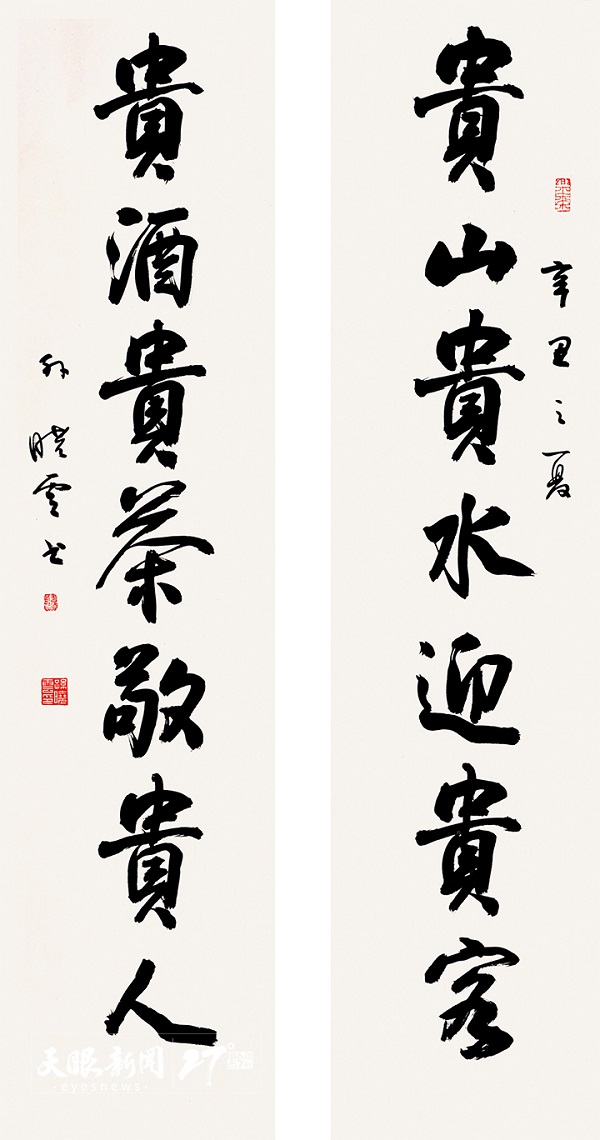 貴山貴水迎貴客
辛丑之夏
貴酒貴茶敬貴人
孙晓雲书
天眼新闻
·eyesnews·
27°